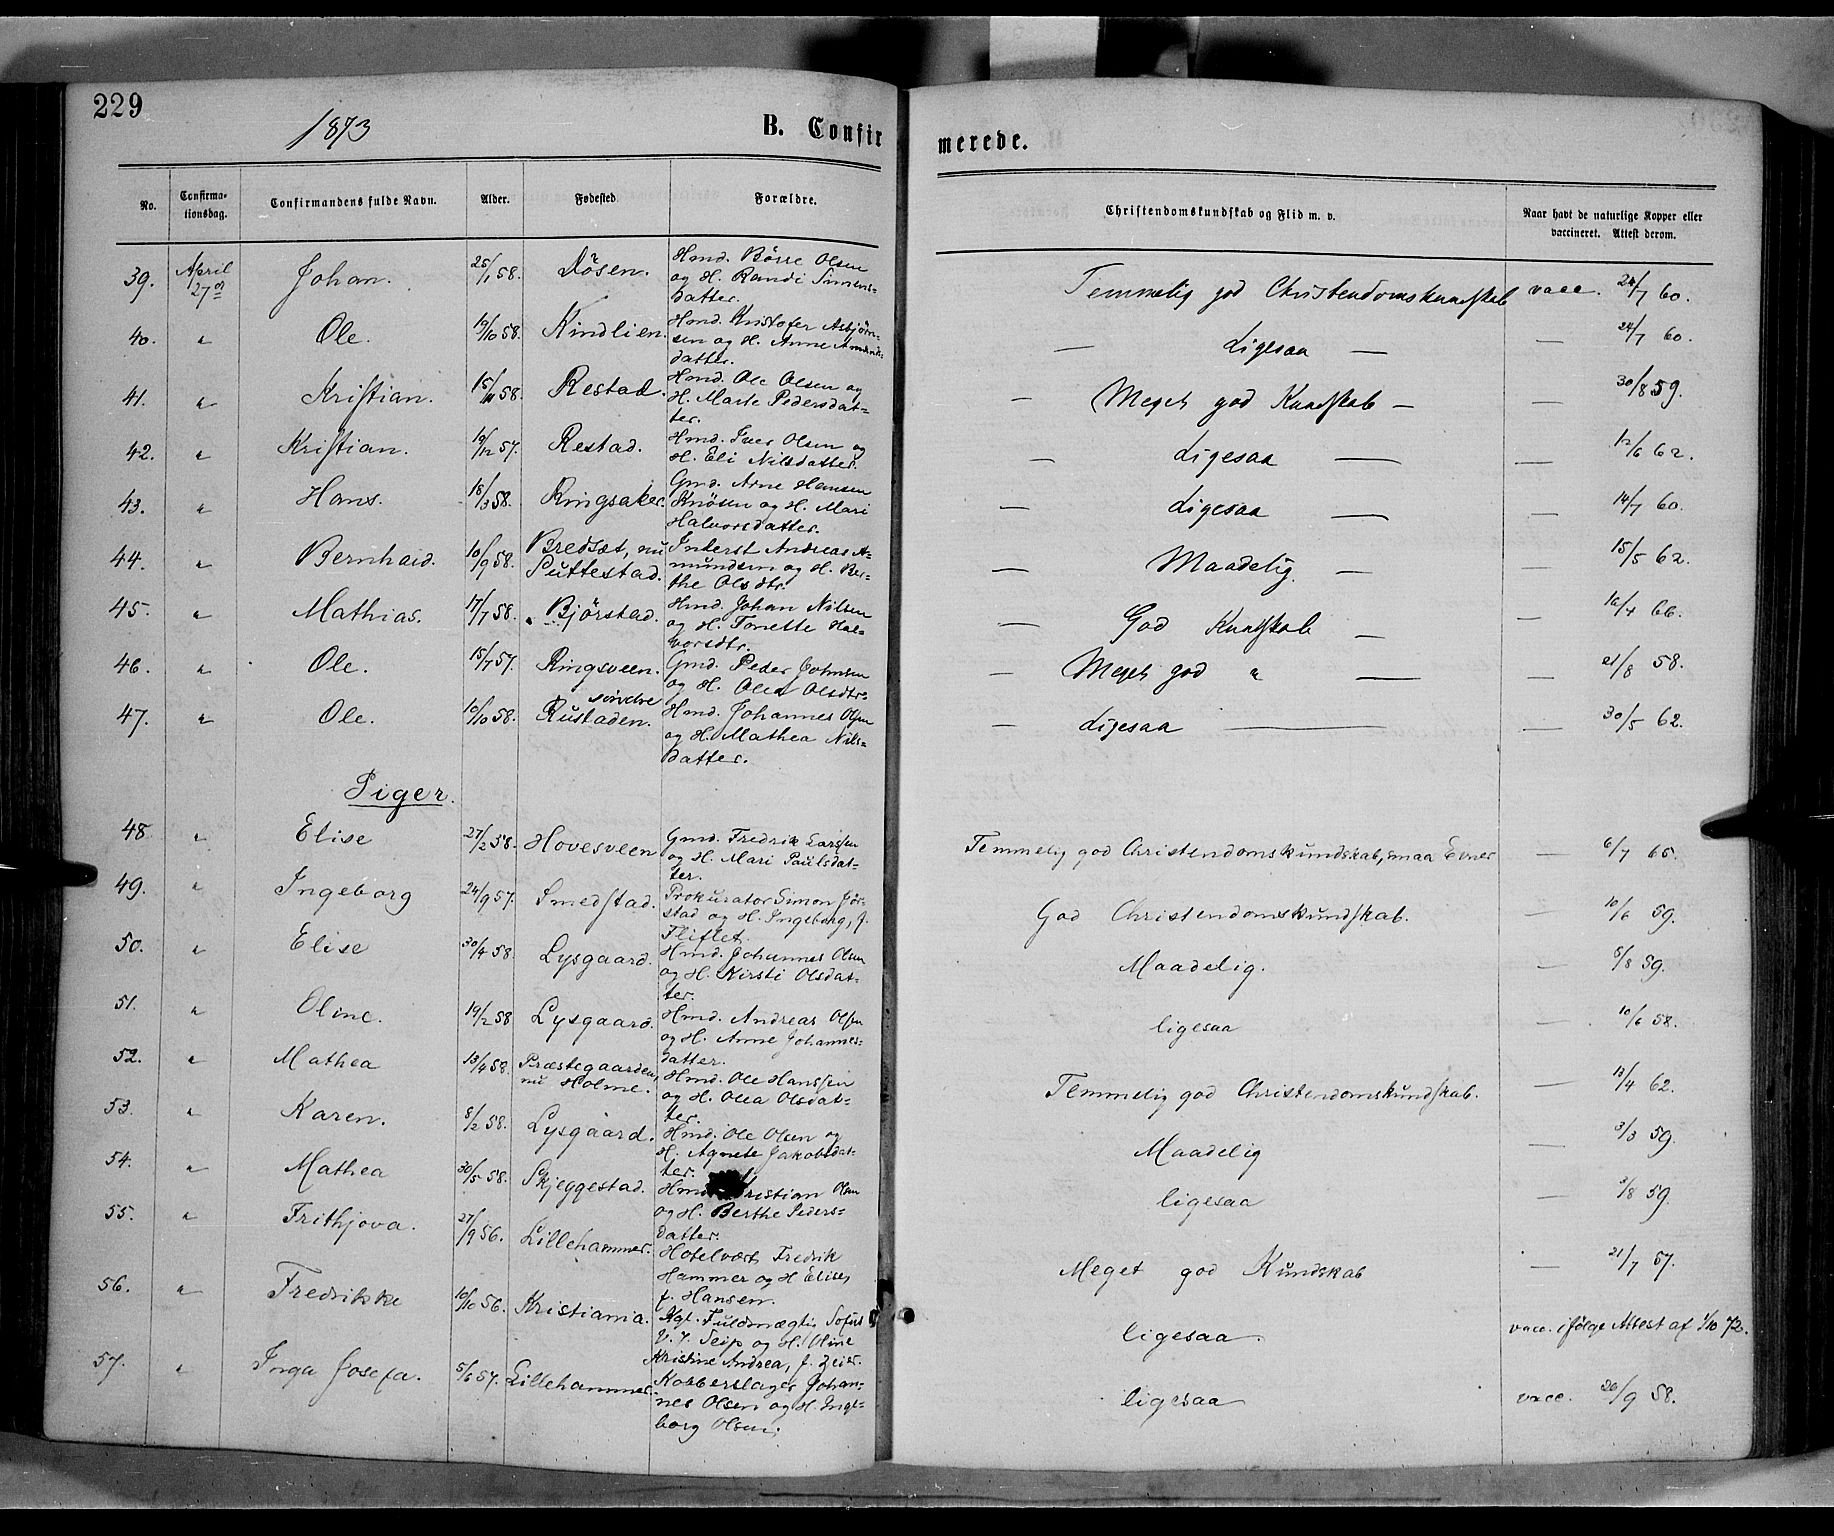 229
1873
B. Confirmerede.
No. Confirmationsdag. Confirmandens fulde Navn. Alder. Fødested. Forældre. Christendomskundskab og Flid m. v. Naar havt de naturlige Kopper eller vaccineret. Attest derom.
39. April 27de Johan. 25/1 58. Døsen. Hmd. Börre Olsen
og H. Randi Simens-
datter. Temmelig god Christendomskundskab vacc. 24/7 60.
40. " Ole. 19/10 58. Kindlien. Hmd. Kristofer Asbjørn-
sen og H. Anne Amunds-
datter. — Ligesaa — — 24/7 60.
41. " Kristian. 15/11 58. Restad. Hmd. Ole Olsen og
H. Marte Pedersdat-
ter. — Meget god Kundskab — — 30/8 59.
42. " Kristian. 19/12 57. Restad. Hmd. Iver Olsen og
H. Eli Nilsdatter. — Ligesaa — — 12/6 62.
43. " Hans. 18/3 58. Ringsaker. Gmd. Arne Hansen
Knösen og H. Mari
Halvorsdatter. — Ligesaa — — 14/7 60.
44. " Bernhard. 10/9 58. Bredsæt, nu
Suttestad. Inderst Andreas A-
mundsen og H. Ber-
the Olsdtr. — Maadelig. — — 15/5 62.
45. " Mathias. 17/7 58. Bjørstad. Hmd. Johan Nilsen
og H. Tonette Hal-
vorsdtr. — God Kundskab — — 16/4 66.
46. " Ole. 15/7 57. Ringsveen. Gmd. Peder Johnsen
og H. Olea Olsdtr. — Meget god " — — 21/8 58.
47. " Ole. 10/10 58. søndre
Rustaden. Hmd. Johannes Olsen
og H. Mathea Nils-
datter. — Ligesaa — — 30/5 62.
Piger.
48. " Elise 27/2 58. Hovesveen Gmd. Fredrik Larssen
og H. Mari Paulsdat-
ter. Temmelig god Christendomskundskab, smaa Evner — 6/7 65.
49. " Ingeborg 24/9 57. Smedstad. Prokurator Simon Jør-
stad og H. Ingeborg, f.
Fliflet. God Christendomskundskab. — 10/6 59.
50. " Elise 30/4 58. Lysgaard. Hmd. Johannes Olsen
og H. Kirsti Olsdat-
ter. Maadelig. — 5/8 59.
51. " Oline. 19/2 58 Lysgaard. Hmd. Andreas Olsen
og H. Anne Johannes-
datter. ligesaa — 10/6 58.
52. " Mathea 13/4 58. Præstegaarden,
nu Holme. Hmd. Ole Hanssen
og H. Olea Olsdat-
ter. Temmelig god Christendomskundskab. — 13/4 62.
53. " Karen. 8/2 58. Lysgaard. Hmd. Ole Olsen og
H. Agnete Jakobsdat-
ter. Maadelig — 3/3 59.
54. " Mathea 30/5 58. Skjeggestad. Hmd. Kristian Olsen
og H. Berthe Peders-
datter. ligesaa — 3/8 59.
55. " Frithjova. 27/9 56. Lillehammer. Hotelvært Fredrik
Hammer og H Elise,
f. Hansen. Meget god Kundskab — 21/7 57.
56. " Fredrikke 10/10 56. Kristiania. Kgl. Fuldmægtig Sofus
V. F. Seip og H. Oline
Kristine Andrea, f. Zeier. ligesaa. vacc. ifølge Attest af 1/10 72.
57. " Inga Josefa. 5/6 57. Lillehammer. Kobberslager Johan-
nes Olsen og H. Inge-
borg Olsen. ligesaa vacc. 20/9 58.